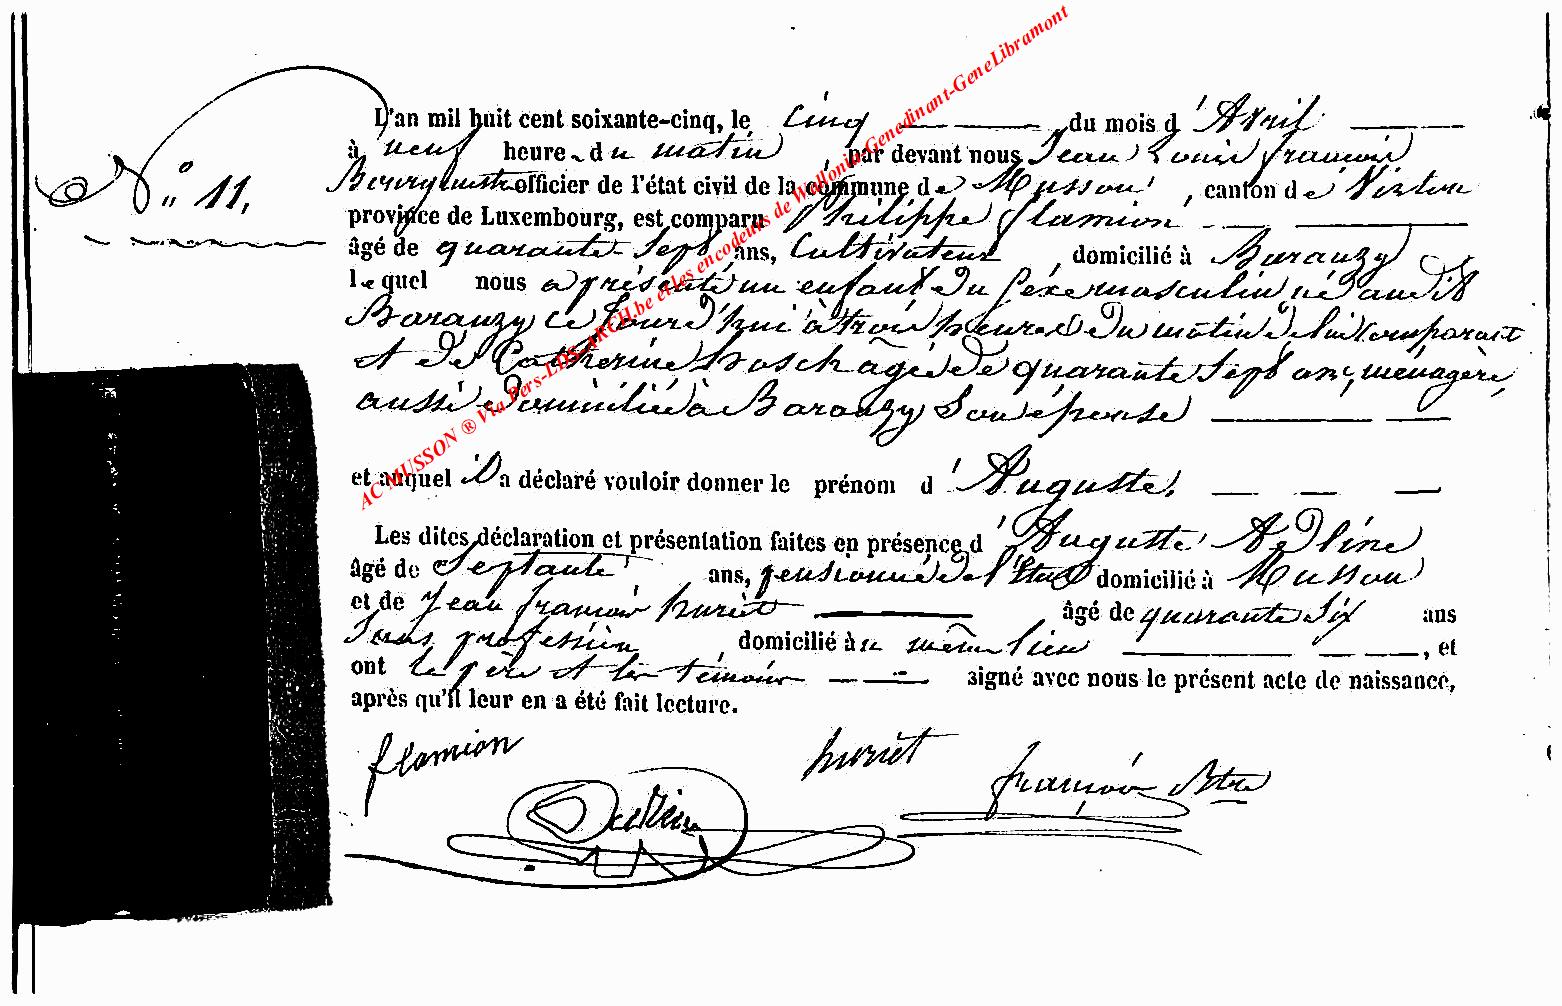 L'an mil huit cent soixante-cinq, le cinq du mois d'Avril
à neuf heures du matin par devant nous Jean Louis françois
N° 11. Bourgmestre officier de l'état civil de la commune de Musson, canton de Virton
province de Luxembourg, est comparu Philippe flamion
âgé de quarante-sept ans, Cultivateur, domicilié à Baranzy
lequel nous a présenté un enfant du sexe masculin né audit
Baranzy ce jourd'hui à trois heures du matin de lui comparant
et de Catherine âgée de quarante sept ans, ménagère,
aussi domiciliée à Baranzy son épouse
et auquel il a déclaré vouloir donner le prénom d'Auguste.
Les dites déclaration et présentation faites en présence d'Auguste
âgé de Septante ans, pensionné de l'Etat domicilié à Musson
et de Jean françois huriet âgé de quarante six ans
Sans profession, domicilié au même lieu, et
ont le père et les témoins signé avec nous le présent acte de naissance,
après qu'il leur en a été fait lecture.
flamion huriet françois Btre
AC MUSSON ® Via Pers-LDS-ARCH.be et les encodeurs de Wallonia-Genedinant-GeneLibramont